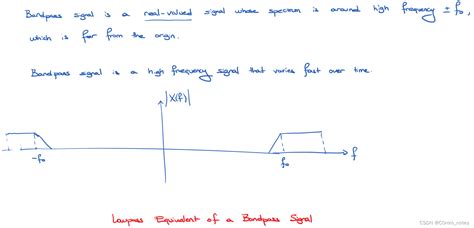 Bandpass signal is a real-valued signal whose spectrum is around high frequency ± f₀,
which is far from the origin.
Bandpass signal is a high frequency signal that varies fast over time.
|X(f)|
-f₀
f₀
f
Lowpass Equivalent of a Bandpass Signal